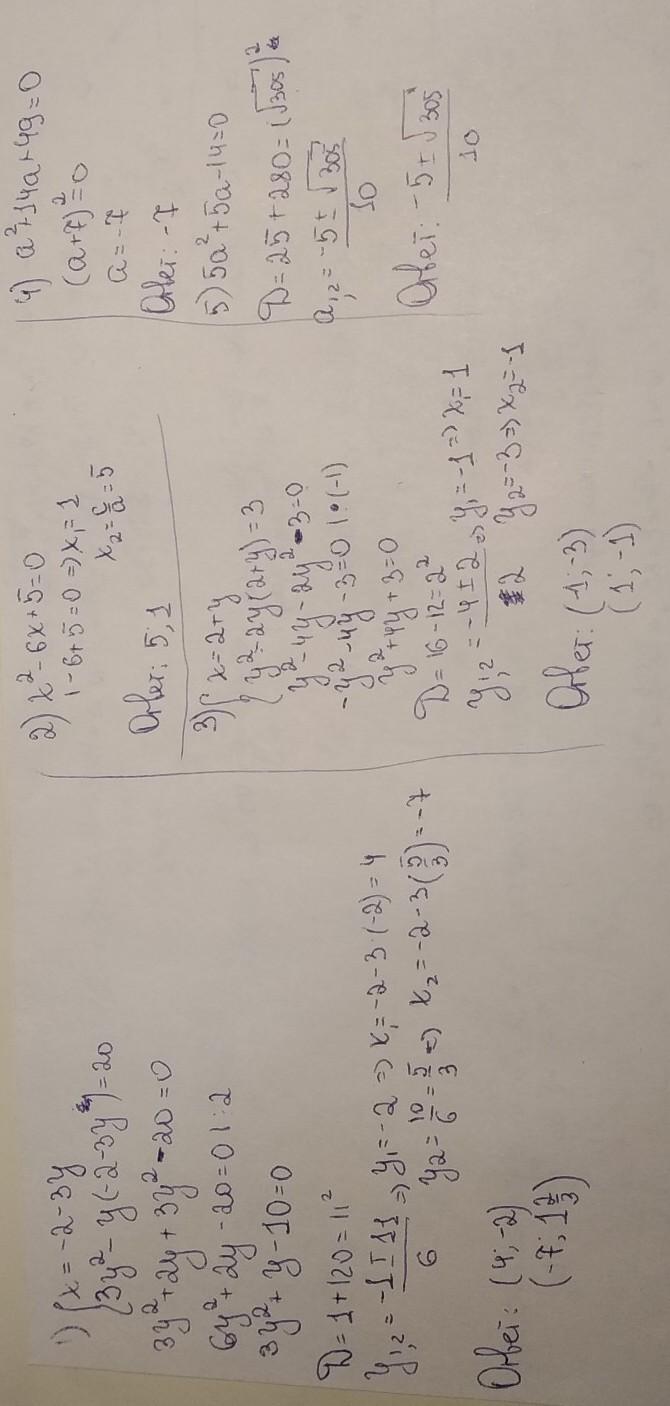 1) { x = -2-3y
3y² - y(-2-3y) = 20
3y² + 2y + 3y² - 20 = 0
6y² + 2y - 20 = 0 | : 2
3y² + y - 10 = 0
D = 1 + 120 = 11²
y₁,₂ = (-1 ± 11)/6 => y₁ = -2 => x₁ = -2 - 3·(-2) = 4
y₂ = 10/6 = 5/3 => x₂ = -2 - 3(5/3) = -7
Ответ: (4; -2)
(-7; 1 2/3)
2) x² - 6x + 5 = 0
1 - 6 + 5 = 0 => x₁ = 1
x₂ = c/a = 5
Ответ: 5; 1
3) { x = 2 + y
y² - 2y(2+y) = 3
y² - 4y - 2y² - 3 = 0
-y² - 4y - 3 = 0 | · (-1)
y² + 4y + 3 = 0
D = 16 - 12 = 2²
y₁,₂ = (-4 ± 2)/2 => y₁ = -1 => x₁ = 1
y₂ = -3 => x₂ = -1
Ответ: (1; -3)
(1; -1)
4) a² + 14a + 49 = 0
(a+7)² = 0
a = -7
Ответ: -7
5) 5a² + 5a - 14 = 0
D = 25 + 280 = (√305)²
a₁,₂ = (-5 ± √305)/10
Ответ: (-5 ± √305)/10